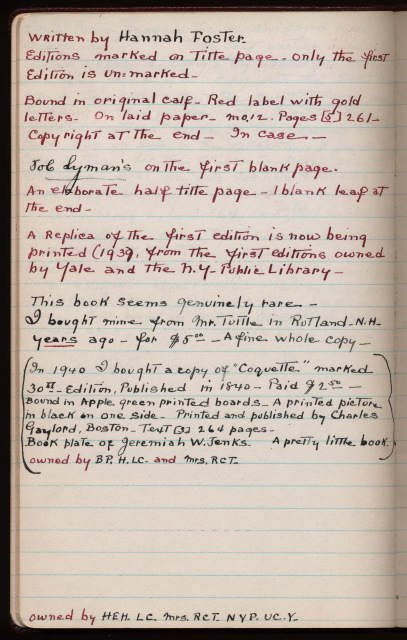 Written by Hannah Foster.
Editions marked on Title page. only the first
Edition is un=marked_
Bound in original calf_ Red label with gold
letters_ On laid paper_ mo,12_ Pages [5] 261_
Copyright at the end_ In case_ _
Job Lyman's on the first blank page.
An elaborate half title page _ 1 blank leaf at
the end_
A Replica of the first edition is now being
printed (1939, from the first editions owned
by Yale and the N.Y. Public Library_
This book seems genuinely rare_
I bought mine from Mr. Tuttle in Rutland_N.H_
years ago_ for $5.00 _ A fine whole copy_
(In 1940 I bought a copy of "Coquette" marked
30th_ Edition, Published in 1840_ Paid $2.50_
Bound in Apple green printed boards_ A printed picture
in black on one side_ Printed and published by Charles
Gaylord, Boston_ Text [3] 264 pages_
Book plate of Jeremiah W. Jenks. A pretty little book)
owned by BP. H. LC. and Mrs. RCT.
owned by HEH. LC. Mrs. RCT. NYP. UC. Y_